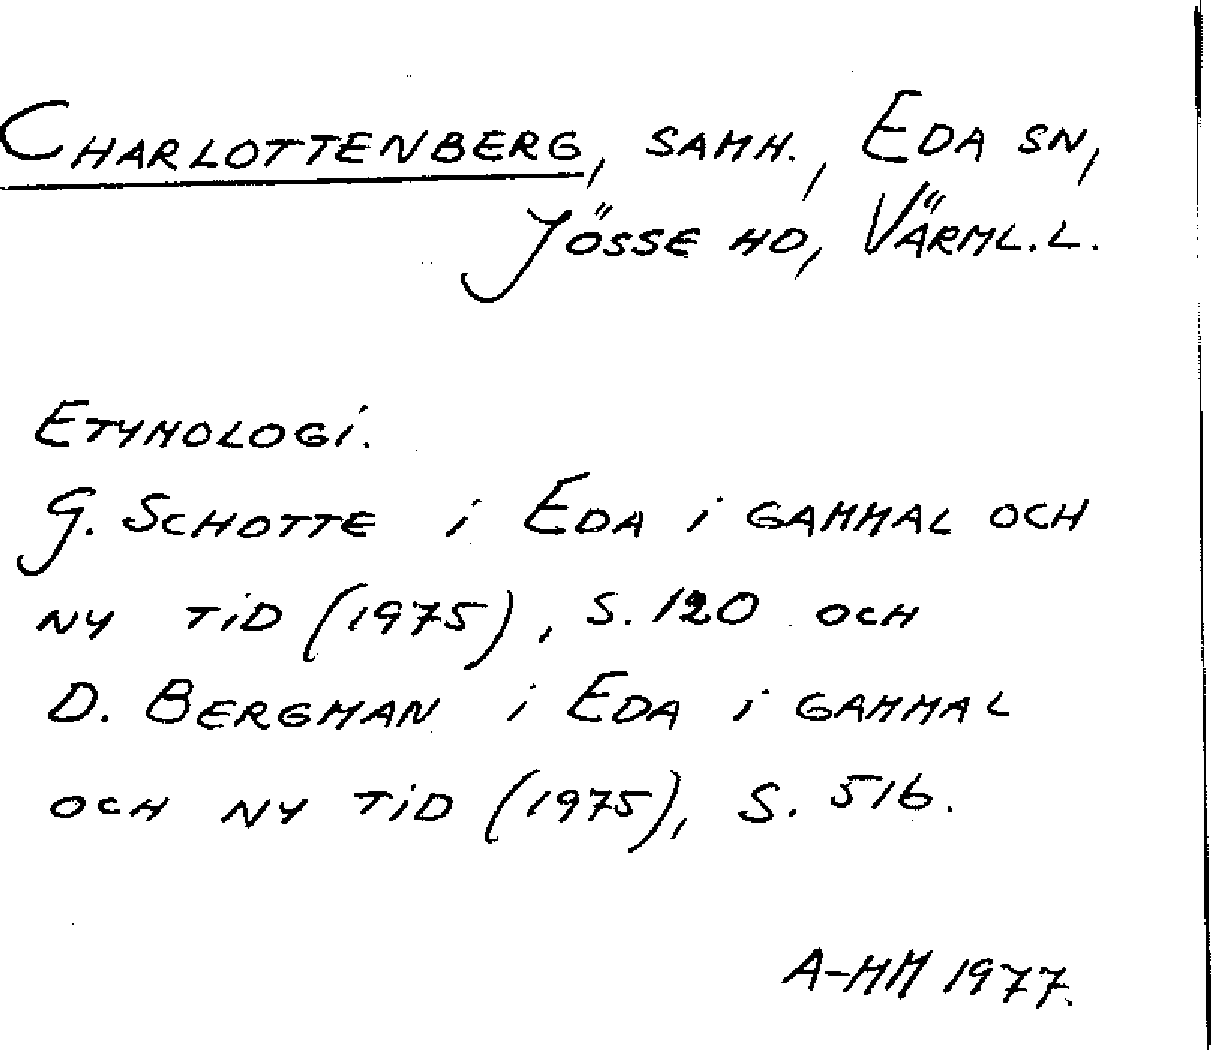 CHARLOTTENBERG, SAMH., EDA SN,
JÖSSE HD, VÄRML.L.
ETYMOLOGI.
G. SCHOTTE i EDA i GAMMAL OCH
NY TiD (1975), S. 120 OCH
D. BERGMAN i EDA i GAMMAL
OCH NY TiD (1975), S. 516.
A-MM 1977.